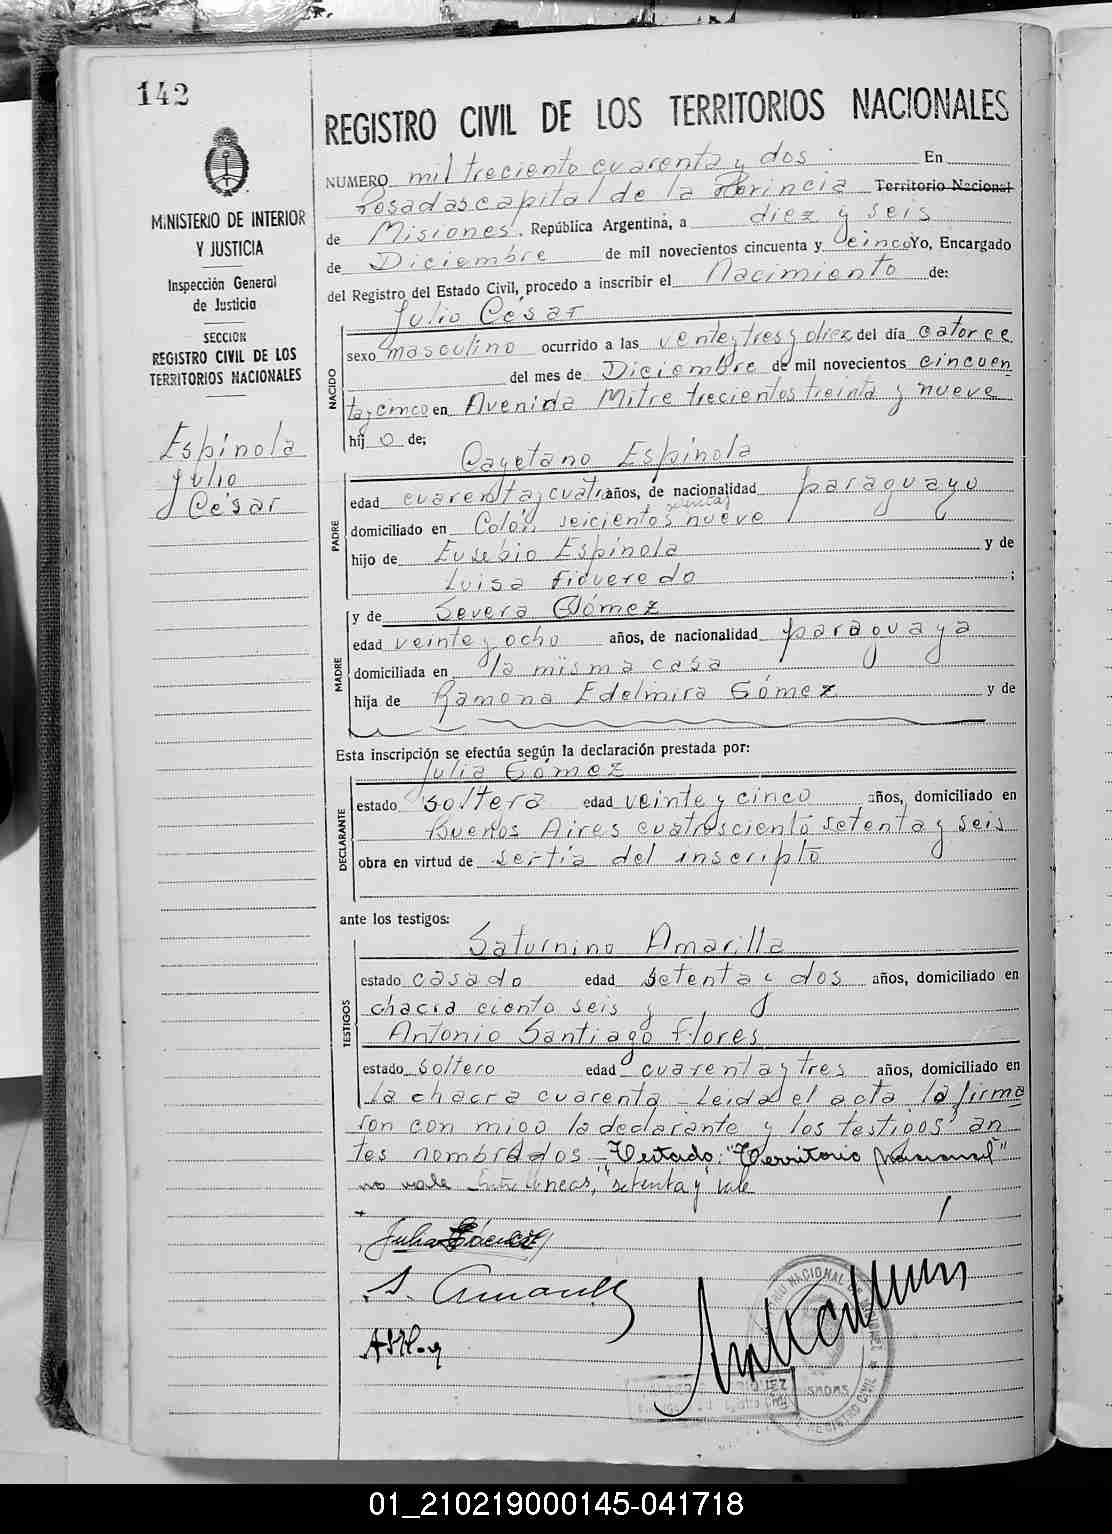 142
REGISTRO CIVIL DE LOS TERRITORIOS NACIONALES
MINISTERIO DE INTERIOR
Y JUSTICIA
Inspección General
de Justicia
SECCION
REGISTRO CIVIL DE LOS
TERRITORIOS NACIONALES
Espinola
Julio
César
NUMERO mil treciento cuarenta y dos En
Posadas capital de la Territorio Nacional
de Misiones. República Argentina, a diez y seis
de Diciembre de mil novecientos cincuenta y cinco Yo, Encargado
del Registro del Estado Civil, procedo a inscribir el Nacimiento de:
Julio César
NACIDO
sexo masculino ocurrido a las del día catorce
del mes de Diciembre de mil novecientos cincuen
ta y cinco en Avenida Mitre trecientos treinta y nueve
hij o de;
Cayetano Espinola
PADRE
edad cuarenta y cuatro años, de nacionalidad paraguayo
setenta y
domiciliado en Colón seicientos nueve
hijo de Eusebio Espinola y de
Luisa Figueredo ;
MADRE
y de Severa Gómez
edad veinte y ocho años, de nacionalidad paraguaya
domiciliada en la misma casa
hija de Ramona Edelmira Gómez y de
Esta inscripción se efectúa según la declaración prestada por:
Julia Gómez
DECLARANTE
estado soltera edad veinte y cinco años, domiciliado en
Buenos Aires cuatrosciento setenta y seis
obra en virtud de del inscripto
ante los testigos:
Saturnino Amarilla
TESTIGOS
estado casado edad setenta y dos años, domiciliado en
chacra ciento seis y
Antonio Santiago Flores
estado soltero edad cuarenta y tres años, domiciliado en
la chacra cuarenta - Leida el acta la firma
ron con migo la declarante y los testigos an
tes nombrados - Testado: "Territorio Nacional"
no vale Entre líneas, "setenta y" vale
Julia Gómez
S. Amarilla
01_210219000145-041718